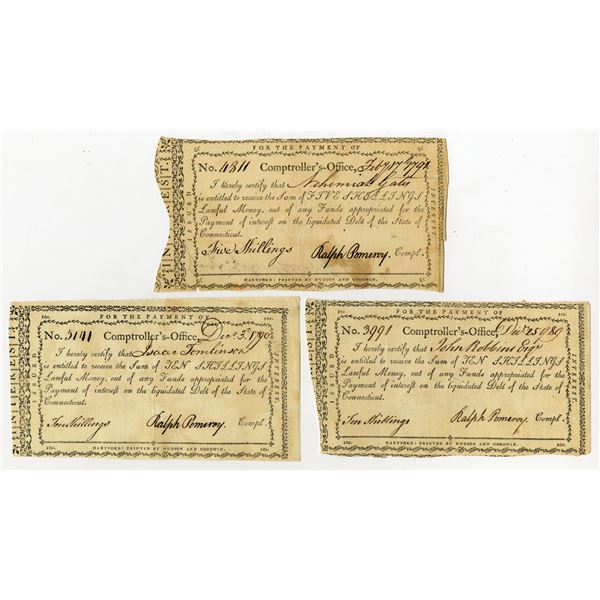 FOR THE PAYMENT OF
No. 4811 Comptroller's-Office, Feby 17th 1791
I hereby certify that Nehemiah Gates
is entitled to receive the Sum of FIVE SHILLINGS
Lawful Money, out of any Funds appropriated for the
Payment of interest on the liquidated Debt of the State of
Connecticut.
Five Shillings Ralph Pomeroy. Compt.
HARTFORD: PRINTED BY HUDSON AND GOODWIN.
ISSUED
INTEREST
10s. FOR THE PAYMENT OF 10s.
No. 5141 Comptroller's-Office, Decr. 3d 1790
I hereby certify that Isaac Tomlinson
is entitled to receive the Sum of TEN SHILLINGS
Lawful Money, out of any Funds appropriated for the
Payment of interest on the liquidated Debt of the State of
Connecticut.
Ten Shillings Ralph Pomeroy. Compt.
10s. HARTFORD: PRINTED BY HUDSON AND GOODWIN. 10s.
ISSUED
INTEREST
10s. FOR THE PAYMENT OF
No. 3991 Comptroller's-Office, Decr 25 1789
I hereby certify that John Robbins Esqr
is entitled to receive the Sum of TEN SHILLINGS
Lawful Money, out of any Funds appropriated for the
Payment of interest on the liquidated Debt of the State of
Connecticut.
Ten Shillings Ralph Pomeroy. Compt.
10s. HARTFORD: PRINTED BY HUDSON AND GOODWIN. 10s.
ISSUED
INTEREST